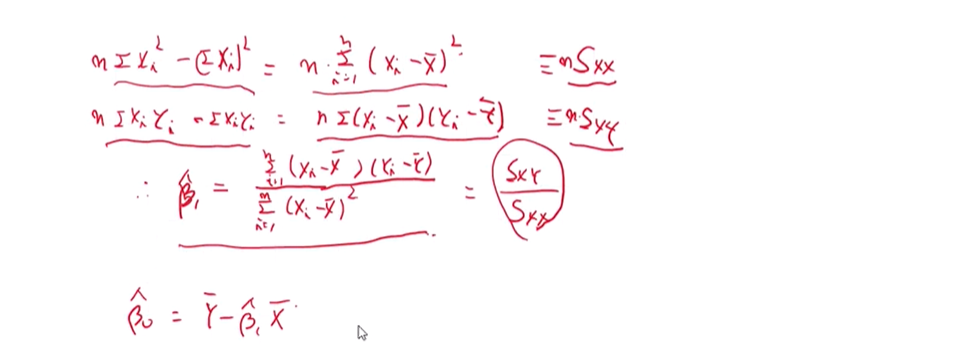 n Σ Xᵢ² − (Σ Xᵢ)² = n · Σⁿᵢ₌₁ (Xᵢ − X̄)² ≡ n Sxx
n Σ Xᵢ Yᵢ − Σ Xᵢ Yᵢ = n Σ (Xᵢ − X̄)(Yᵢ − Ȳ) ≡ n · Sxy
∴ β̂₁ = Σⁿᵢ₌₁ (Xᵢ − X̄)(Yᵢ − Ȳ) / Σⁿᵢ₌₁ (Xᵢ − X̄)² = Sxy / Sxx
β̂₀ = Ȳ − β̂₁ X̄